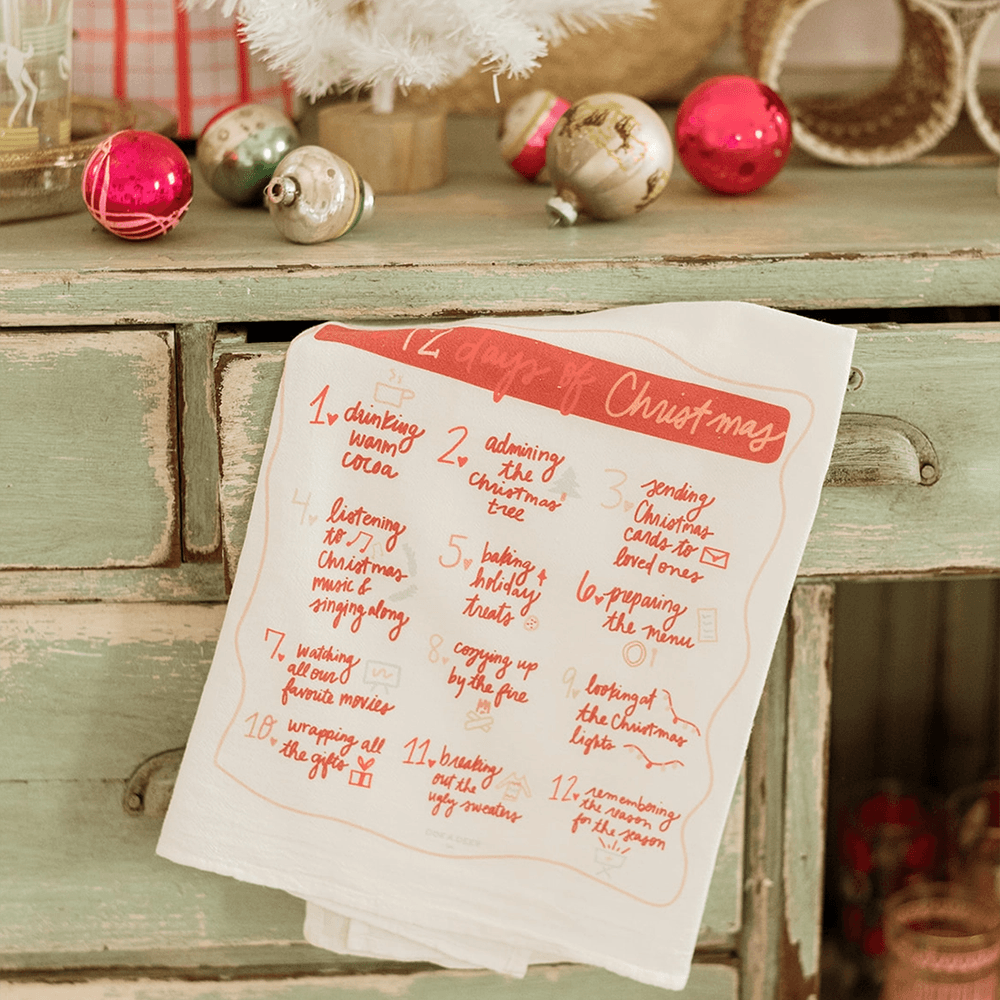 12 days of Christmas
1 drinking
warm
cocoa
2 admiring
the
Christmas
tree
3 sending
Christmas
cards to
loved ones
4 listening
to
Christmas
music &
singing along
5 baking
holiday
treats
6 preparing
the menu
7 watching
all our
favorite movies
8 cozying up
by the fire
9 looking at
the Christmas
lights
10 wrapping all
the gifts
11 breaking
out the
ugly sweaters
12 remembering
the reason
for the season